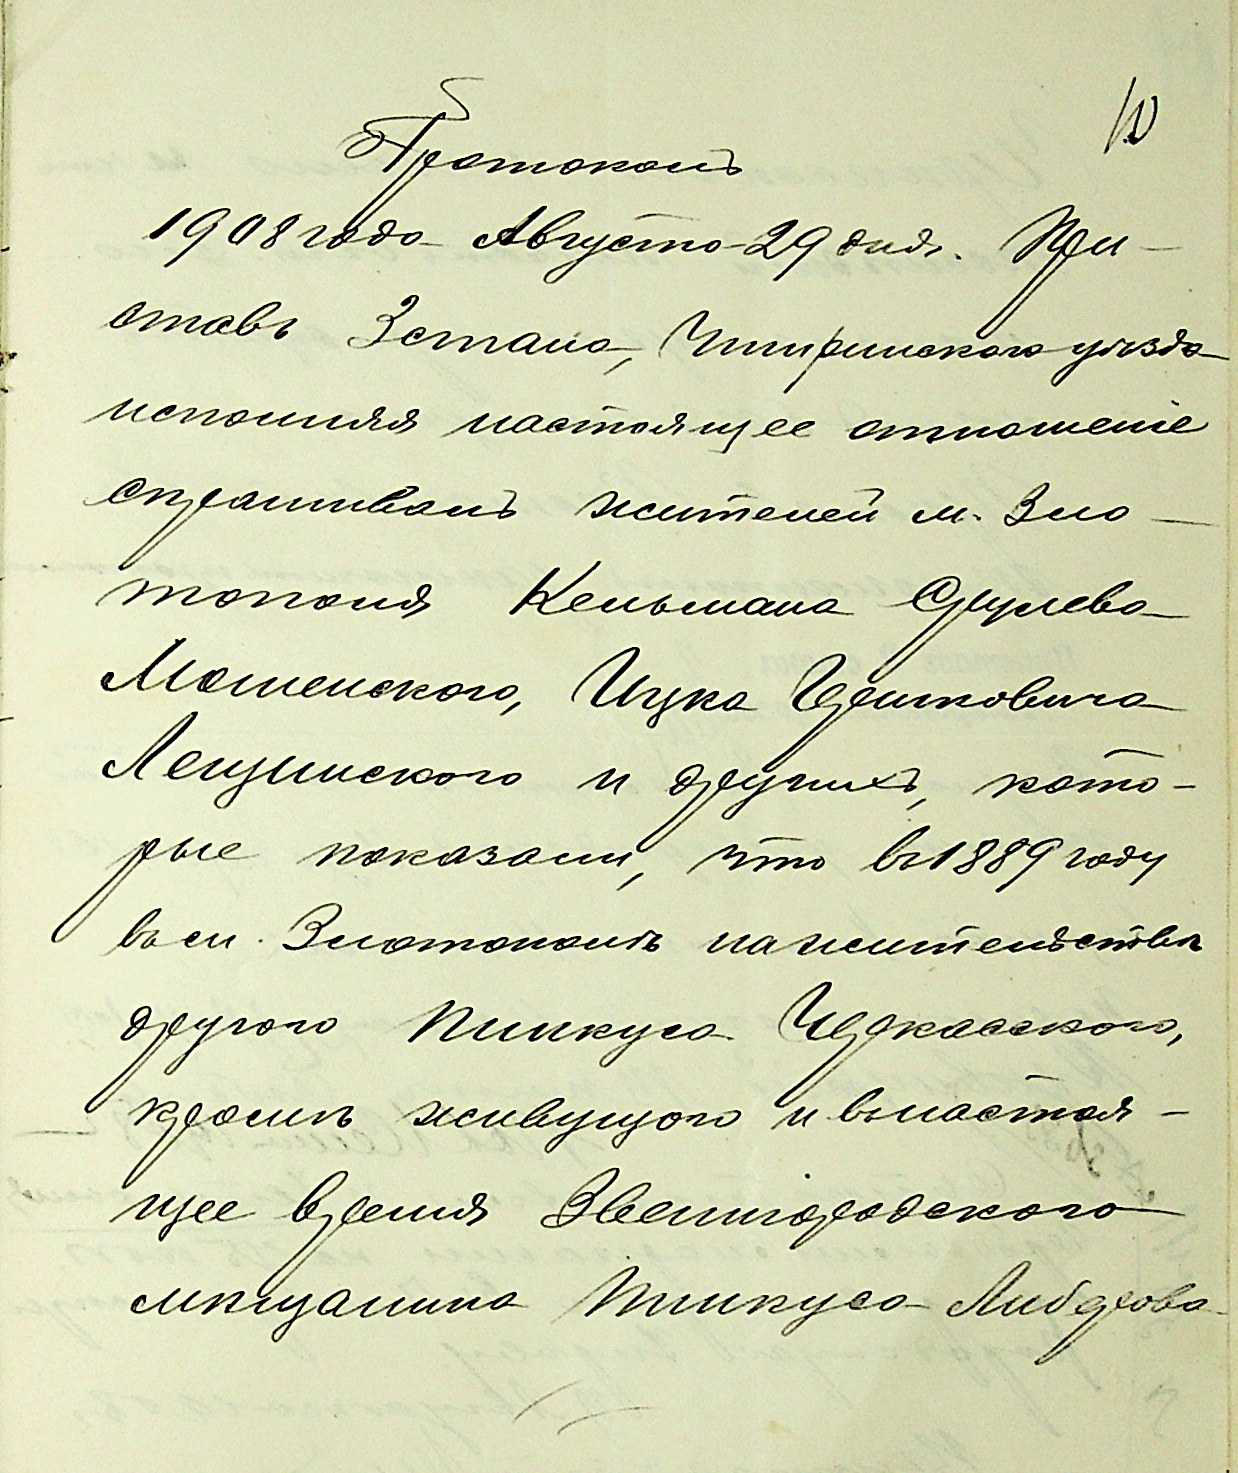 10
Протоколъ
1908 года Августа 29 дня. При-
ставъ 3 стана, Чигиринского уѣзда
исполняя настоящее отношеніе
спрашивалъ жителей м. Зла-
тополя Кельмана Срулева
Мошенского, Ицка Гершковича
Лещинского и другихъ, кото-
рые показали, что въ 1889 году
въ м. Златополѣ на жительствѣ
другого Пинкуса Черкасского,
кромѣ живущого и въ настоя-
щее время Звенигородского
мѣщанина Пинкуса Либерова